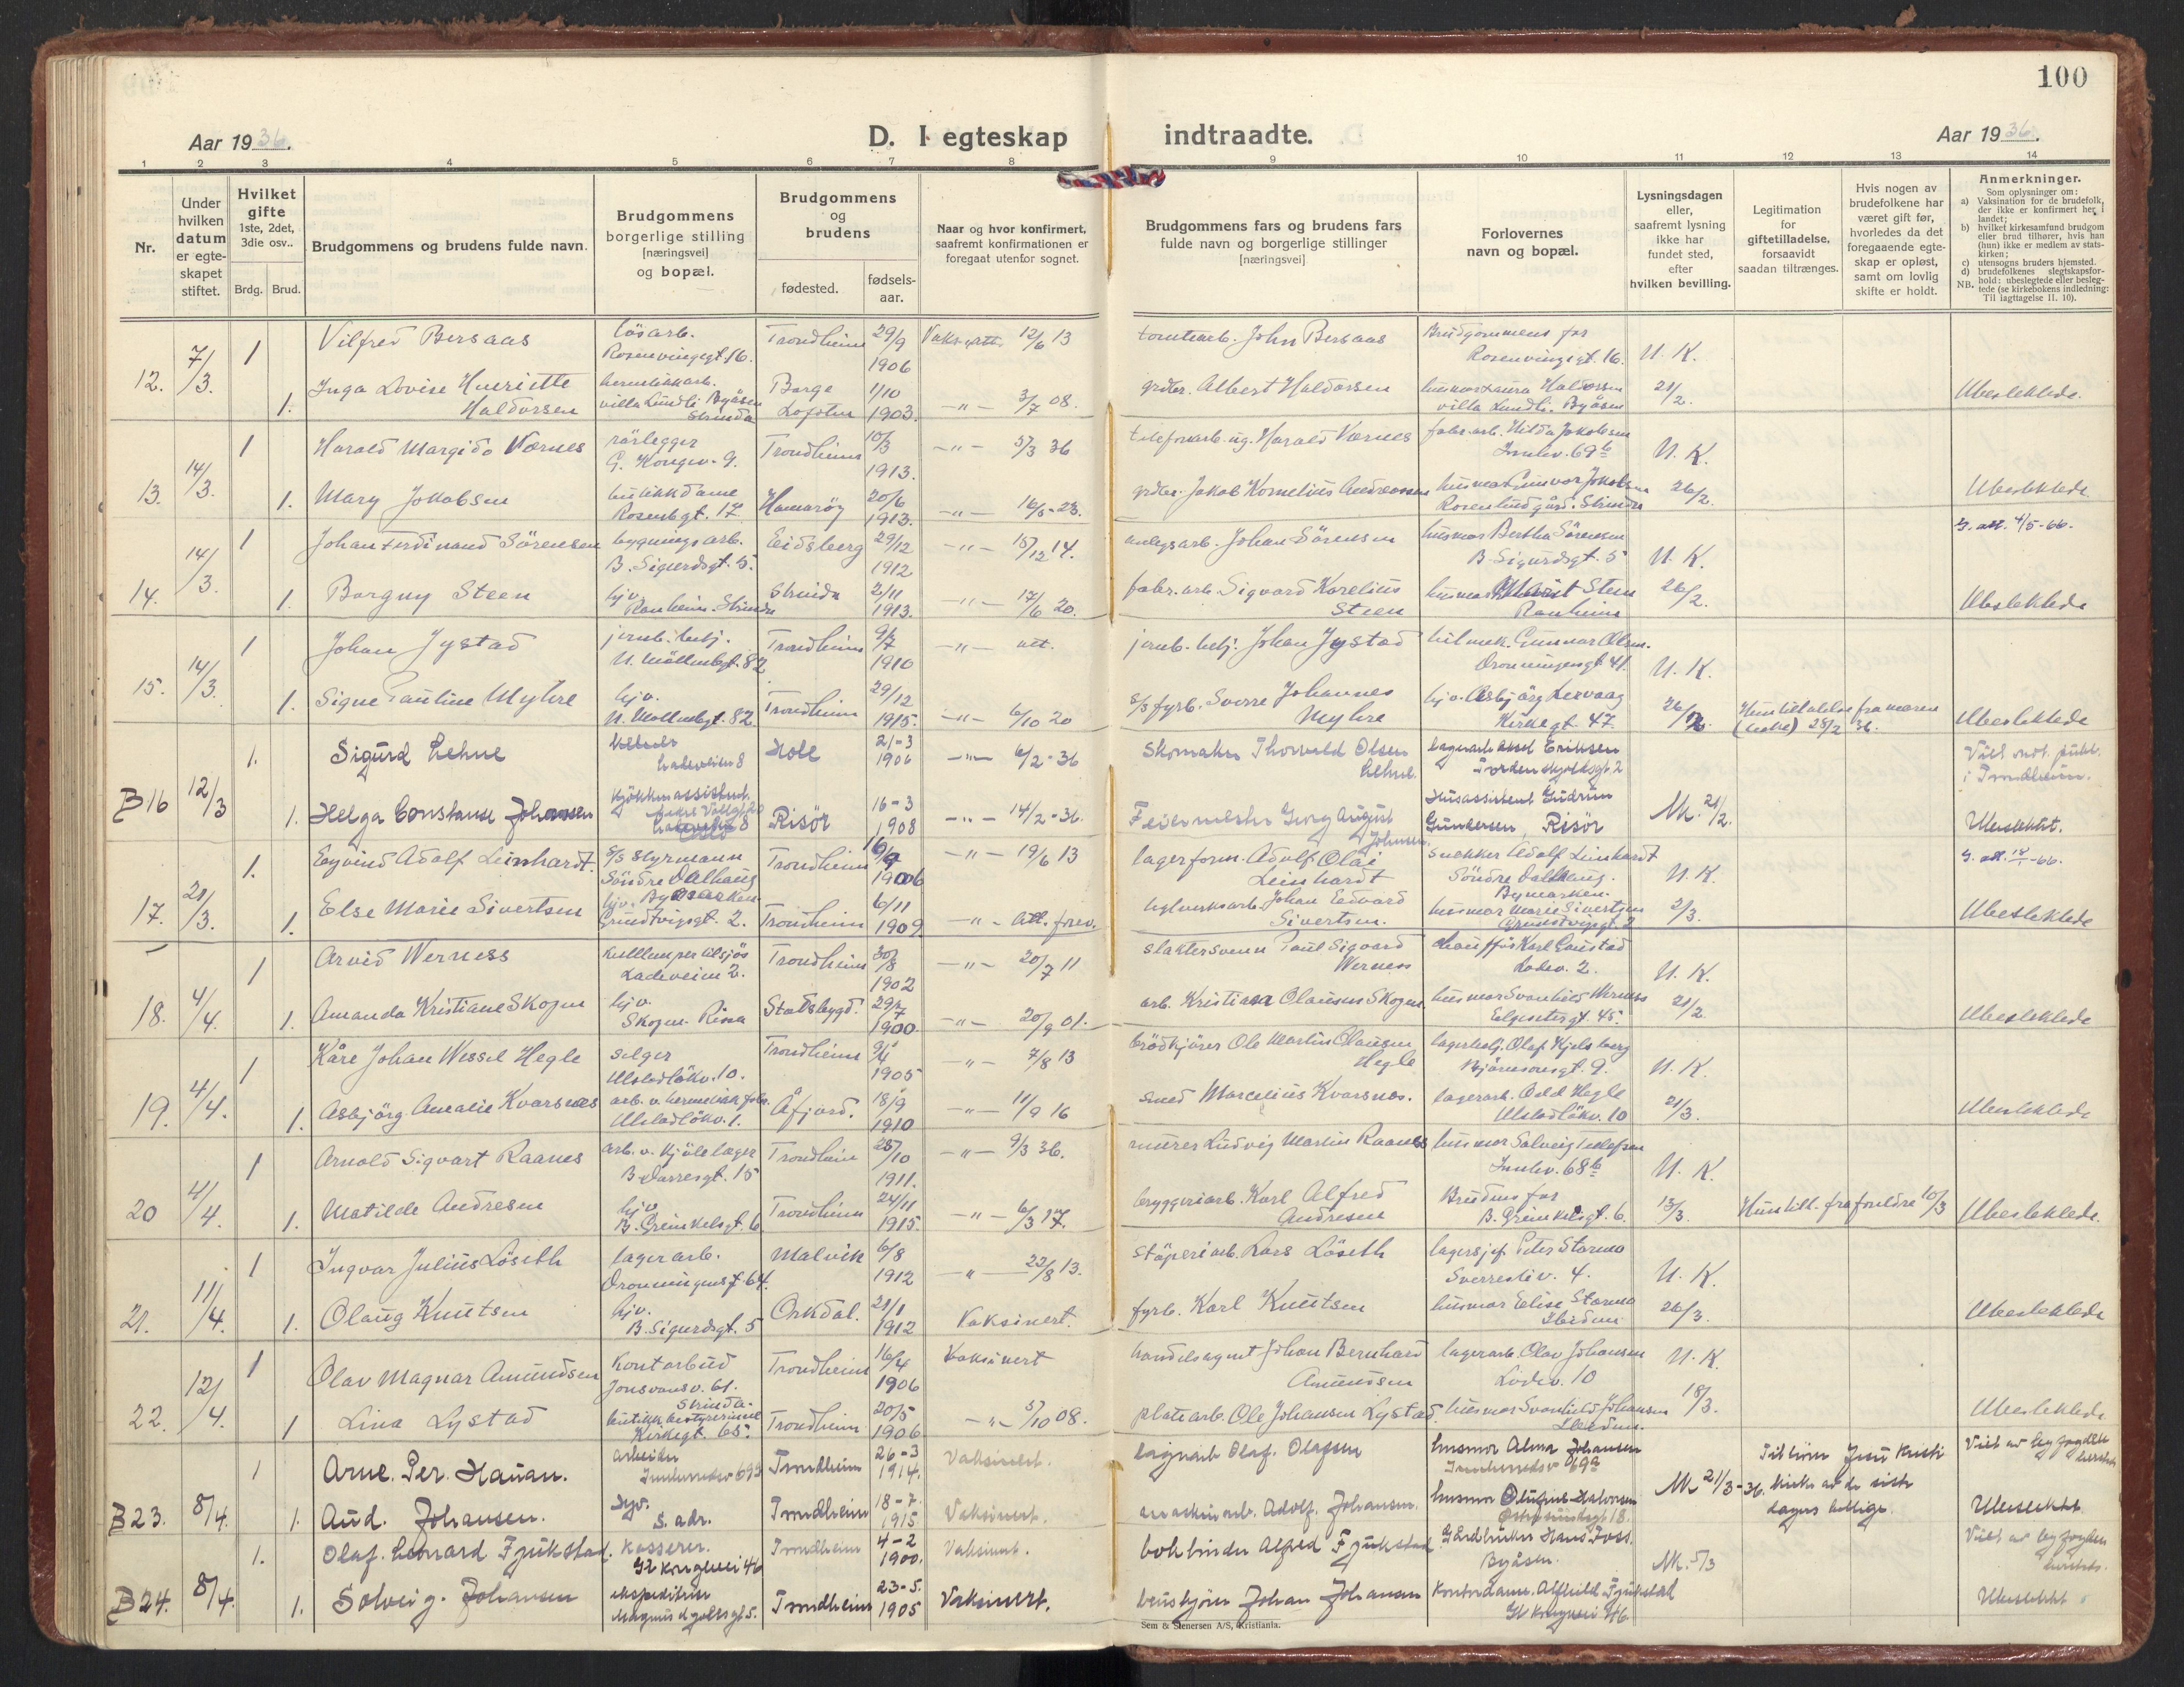 100
Aar 1936.
D. I egteskap
indtraadte.
Aar 1936.
1 2 3 4 5 6 7 8 9 10 11 12 13 14
Nr.
Under hvilken datum er egteskapet stiftet.
Hvilket gifte 1ste, 2det, 3die osv..
Brdg. Brud.
Brudgommens og brudens fulde navn.
Brudgommens borgerlige stilling [næringsvei] og bopæl.
Brudgommens og brudens
fødested. fødsels-aar.
Naar og hvor konfirmert, saafremt konfirmationen er foregaat utenfor sognet.
Brudgommens fars og brudens fars fulde navn og borgerlige stillinger [næringsvei]
Forlovernes navn og bopæl.
Lysningsdagen eller, saafremt lysning ikke har fundet sted, efter hvilken bevilling.
Legitimation for giftetilladelse, forsaavidt saadan tiltrænges.
Hvis nogen av brudefolkene har været gift før, hvorledes da det foregaaende egteskap er opløst, samt om lovlig skifte er holdt.
Anmerkninger.
Som oplysninger om:
a) Vaksination for de brudefolk, der ikke er konfirmert her i landet;
b) hvilket kirkesamfund brudgom eller brud tilhører, hvis han (hun) ikke er medlem av statskirken;
c) utensogns bruders hjemsted.
d) brudefolkenes slegtskapsforhold: ubeslegtede eller beslegtede (se kirkebokens indledning: Til iagttagelse II. 10).
NB.
12. 7/3. 1 Vilfred Bersaas løsarb. Rosenvingegt. 16. Trondheim 29/9 1906 Vaks. att. 12/6 13 tomtearb. John Bersaas Brudgommens far Rosenvingegt. 16. U. K.
1. Inga Lovise Henriette Haldorsen hermetikkarb. villa Lundli Byåsen Strinda Borge Lofoten 1/10 1903. -"- 3/7 08. grdbr. Albert Haldorsen husmor Laura Haldorsen villa Lundli. Byåsen 21/2. Ubeslektede.
13. 14/3. 1 Harald Margido Værnes rørlegger G. Kongev. 9. Trondheim 10/3 1913. -"- 5/3 36 telefonarb. ug. Harald Værnes fabr. arb. Hilda Jakobsen Innhv. 69b U. K.
1. Mary Jakobsen butikkdame Rosenbgt. 17 Hamarøy 20/6 1913. -"- 16/5-23. grdbr. Jakob Kornelius Andreassen husmor Gunvor Jakobsen Rosenlund gård. Strinda 26/2. Ubeslektede.
14. 14/3. 1 Johan Ferdinand Sørensen bygningsarb. B. Sigurdsgt. 5. Eidsberg 29/12 1912 -"- 15/12 14. anlegsarb. Johan Sørensen husmor Bertha Sørensen B. Sigurdsgt. 5 U. K. G. att. 4/5-66.
1. Borgny Steen hjv. Ranheim. Strinda Strinda 2/11 1913. -"- 17/6 20. fabr. arb. Sigvard Korelius Steen husmor Steen Ranheim 26/2. Ubeslektede
15. 14/3. 1 Johan Jystad jernb. betj. N. Møllenbgt. 82 Trondheim 9/7 1910 -"- att. jernb. betj. Johan Jystad bilmek. Gunnar Olsen. Dronningensgt. 41. U. K.
1. Signe Pauline Myhre hjv. N. Møllenbgt. 82 Trondheim 29/12 1915. -"- 6/10 20 s/s fyrb. Sverre Johannes Myhre hjv. Asbjørg Lervaag Kirkegt. 47 26/2. Hun tillatelse fra moren (enke) 28/2 36. Ubeslektede
B16 12/3 1. Sigurd Lehne Ladeveien 8 Hole 21-3 1906 -"- 6/2-36 Skomaker Thorvald Olsen Lehne. lagerarb. Aksel Eriksen Tordenskjoldsgt. 2
1. Helga Constanse Johansen Kjøkkenassistent 8 Risör 16-3 1908 -"- 14/2-36. Feiermester Georg August Johnsen Husassistent Gudrun Gundersen, Risör NK. 21/2. Viet i Trondheim. Ubeslektet.
17. 21/3. 1. Eyvind Adolf Leinhardt. s/s styrmann Søndre Dalhaug Bymarken. Trondheim 1906 -"- 19/6 13 lagerform. Adolf Olai Leinhardt snekker Adolf Leinhardt Søndre Dalhaug. Bymarken. U. K.
1. Else Marie Sivertsen hjv. Grundtvigsgt. 2. Trondheim 6/11 1909 -"- Att. forev. Johan Edvard Sivertsen. husmor Marie Sivertsen Grundtvigsgt. 2 2/3. Ubeslektede
18. 4/4. 1 Arvid Werness kullemper tilsjøs Ladeveien 2. Trondheim 30/8 1902 -"- 20/7 11 slaktersvenn Paul Sigvard Werness chauffør Karl Gaustad Ladev. 2. U. K.
1. Amanda Kristiane Skogen hjv. Skogen. Rissa Stadsbygd. 29/7 1900 -"- 20/9 01. arb. Kristian Olausen Skogen husmor Svanhild Werness Elgesetergt. 45. 21/2. Ubeslektede
19. 4/4. 1 Kåre Johan Wessel Hegle selger Ulstadløkv. 10. Trondheim 1905 -"- 7/8 13 brødkjører Ole Martin Olausen Hegle lagerbetj. Olaf Hjelsberg Bjørnsonsgt. 9. U. K.
1. Asbjørg Amalie Kvarsnes arb. v. hermetikkfabr. Ulstadløkv. 1. Åfjord. 18/9 1910 -"- 11/9 16 smed Marcelius Kvarsnes. lagerarb. Odd Hegle Ulstadløkv. 10 21/3. Ubeslektede
20 4/4. 1 Arnold Sigvart Raanes arb. v. kjølelager B. Darresgt. 15 Trondheim 25/10 1911. -"- 9/3 36. murer Ludvig Martin Raanes husmor Solveig Tellefsen Innhv. 68b U. K.
1. Matilde Andresen hjv. B. Grimkelsgt. 6 Trondheim 24/11 1915. -"- 6/3 17. bryggeriarb. Karl Alfred Andresen Brudens far B. Grimkelsgt. 6. 13/3. Hun till. fra foreldre 10/3 Ubeslektede.
21. 11/4. 1 Ingvar Julius Løseth lagerarb. Dronningensgt. 64. Malvik 6/8 1912 -"- 22/8 13. støperiarb. Lars Løseth lagersjef Peter Starmo Sverresliv. 4. U. K.
1. Olaug Knutsen hjv. B. Sigurdsgt. 5 Orkdal. 21/1 1912 Vaksinert. fyrb. Karl Knutsen husmor Elise Starmo Ibidem 26/3. Ubeslektede
22. 12/4. 1 Olav Magnar Amundsen Kontorbud Jonsvansv. 61. Strinda. Trondheim 16/4 1906 Vaksinert handelsagent Johan Bernhard Amundsen lagerarb. Olav Johansen Ladev. 10 U. K.
1 Lina Lystad butikkbestyrerinne Kirkegt. 65. Trondheim 20/5 1906 -"- 5/10 08. platearb. Ole Johansen Lystad. husmor Svanhild Johansen Ibidem. 18/3. Ubeslektede.
B23. 8/4. 1 Arne. Per. Hauan. arbeider Innherredsv 69a Trondheim 26-3 1914. Vaksinert. Olaf. Olafsen husmor Alma Johansen Innherredsv 69a NK 21/3-36. Tilhører Jesu Kristi kirke av de siste dagers hellige. Viet av byfogden
1. Aud. Johansen. Hjv. s. adr. Trondheim 18-7. 1915 Vaksinert. maskinarb. Adolf. Johansen. husmor Halvorsen Ubeslektet
B24. 8/4. 1. Olaf. Leonard Fjukstad. Kasserer. Gl Kongevei 46 Trondheim 4-2 1900. Vaksinert. bokbinder Alfred Fjukstad Gårdbruker Hans Foss. Byåsen. NK. 5/3 Viet av byfogden
1. Solveig. Johansen ekspeditrise Magnus d godesgt 5. Trondheim 23-5. 1905 Vaksinert. Johan Johansen Kontordame. Alfhild Fjukstad Gl Kongevei 46 Ubeslektet
Sem & Stenersen A/S, Kristiania.